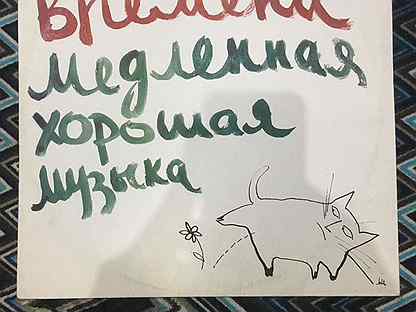 Времена
медленная
хорошая
музыка